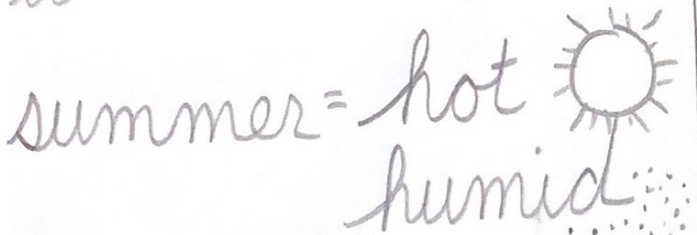 summer = hot
humid